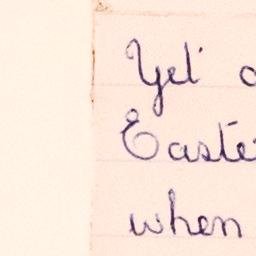 Yet
Easte
when